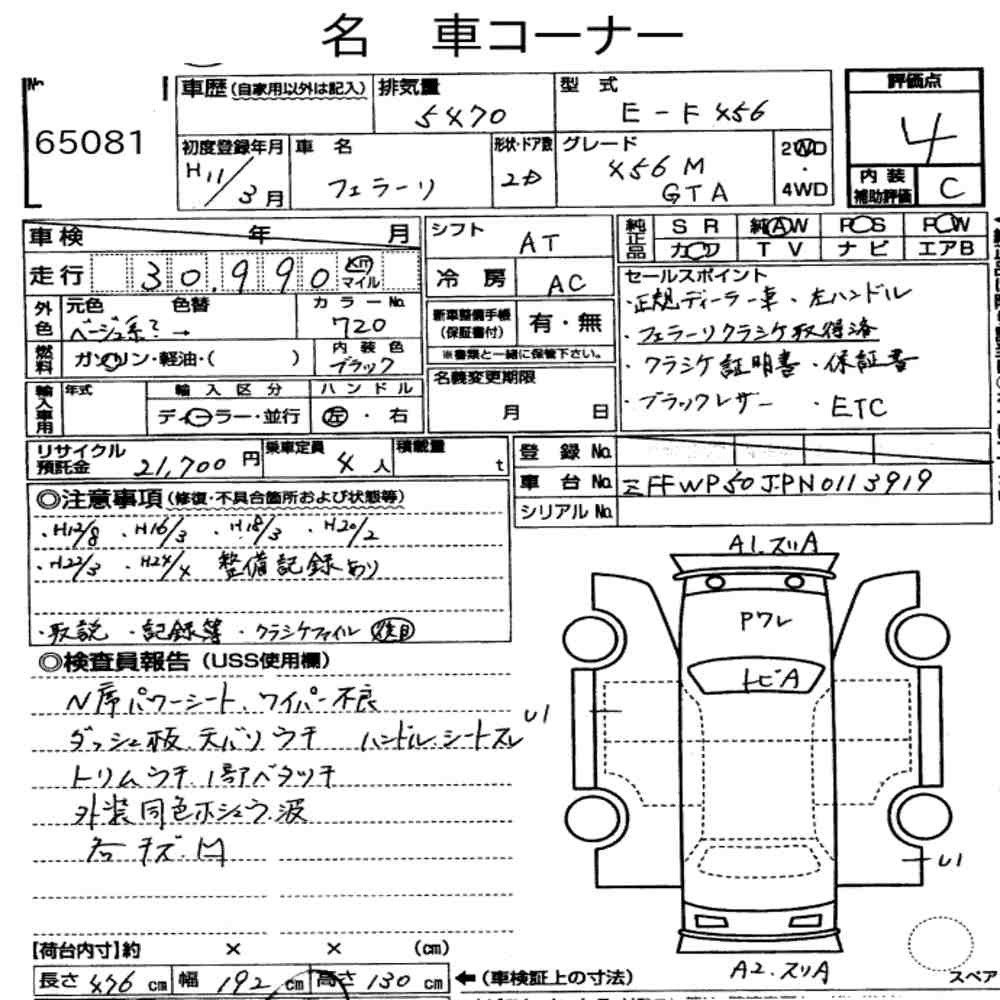 名 車コーナー
No.
65081
車歴 (自家用以外は記入)
排気量
5470
型 式
E-F456
評価点
4
内装補助評価 C
初度登録年月
H11/3月
車 名
フェラーリ
形状・ドア数
2D
グレード
456M
GTA
2WD
・
4WD
車検 年 月
走行 30,990 km マイル
シフト AT
冷房 AC
純正品 SR 純AW PS PW
カワ TV ナビ エアB
外色 元色 色替
ベージュ系? →
カラーNo.
720
燃料 ガソリン・軽油・( )
内装色
ブラック
新車整備手帳(保証書付) 有・無
※書類と一緒に保管下さい。
セールスポイント
・正規ディーラー車 ・左ハンドル
・フェラーリクラシケ取得済
・クラシケ証明書 ・保証書
・ブラックレザー ・ETC
輸入車用 年式 輸入区分 ハンドル
ディーラー・並行 左・右
名義変更期限
月 日
リサイクル預託金 21,700円
乗車定員 4人
積載量 t
登録No.
車台No. ZFFWP50JPN0113919
シリアルNo.
◎注意事項 (修復・不具合箇所および状態等)
・H12/8 ・H16/3 ・H18/3 ・H20/2
・H22/3 ・H24/4 整備記録あり
・取説 ・記録等 ・クラシケファイル
◎検査員報告 (USS使用欄)
N席パワーシート、ワイパー不良
ダッシュ板、天バリウキ ハンドル、シートスレ
トリムウキ、1部ベタツキ
外装同色ホシュウ、波
各キズ、M
A1.スリA
Pワレ
トビA
U1
U1
A2.スリA
スペア
【荷台内寸】約 × × (cm)
長さ 476 cm 幅 192 cm 高さ 130 cm ←(車検証上の寸法)